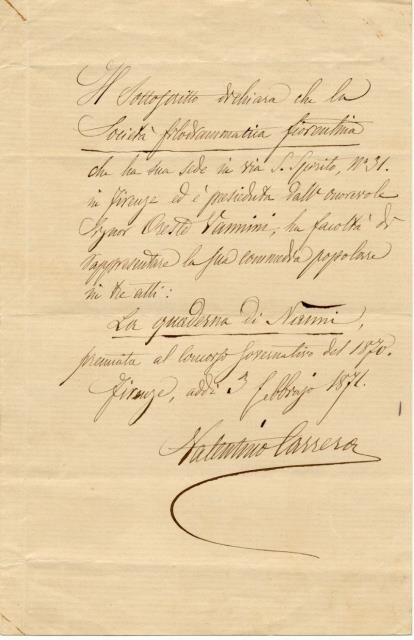 Il Sottoscritto dichiara che la
Società filodrammatica fiorentina
che ha sua sede in via S. Spirito, N° 31.
in Firenze ed è presieduta dall'onorevole
Signor Oreste Vannini, ha facoltà di
rappresentare la sua commedia popolare
in tre atti:
La quaderna di Nanni,
premiata al concorso governativo del 1870.
Firenze, addì 3 febbrajo 1871.
Valentino Carrera